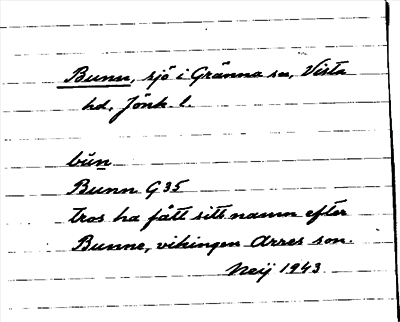 Bunn, sjö i Gränna sn, Vista
hd, Jönk. l.
bŭn
Bunn G 35
tros ha fått sitt namn efter
Bunne, vikingen Arres son.
Neij 1943